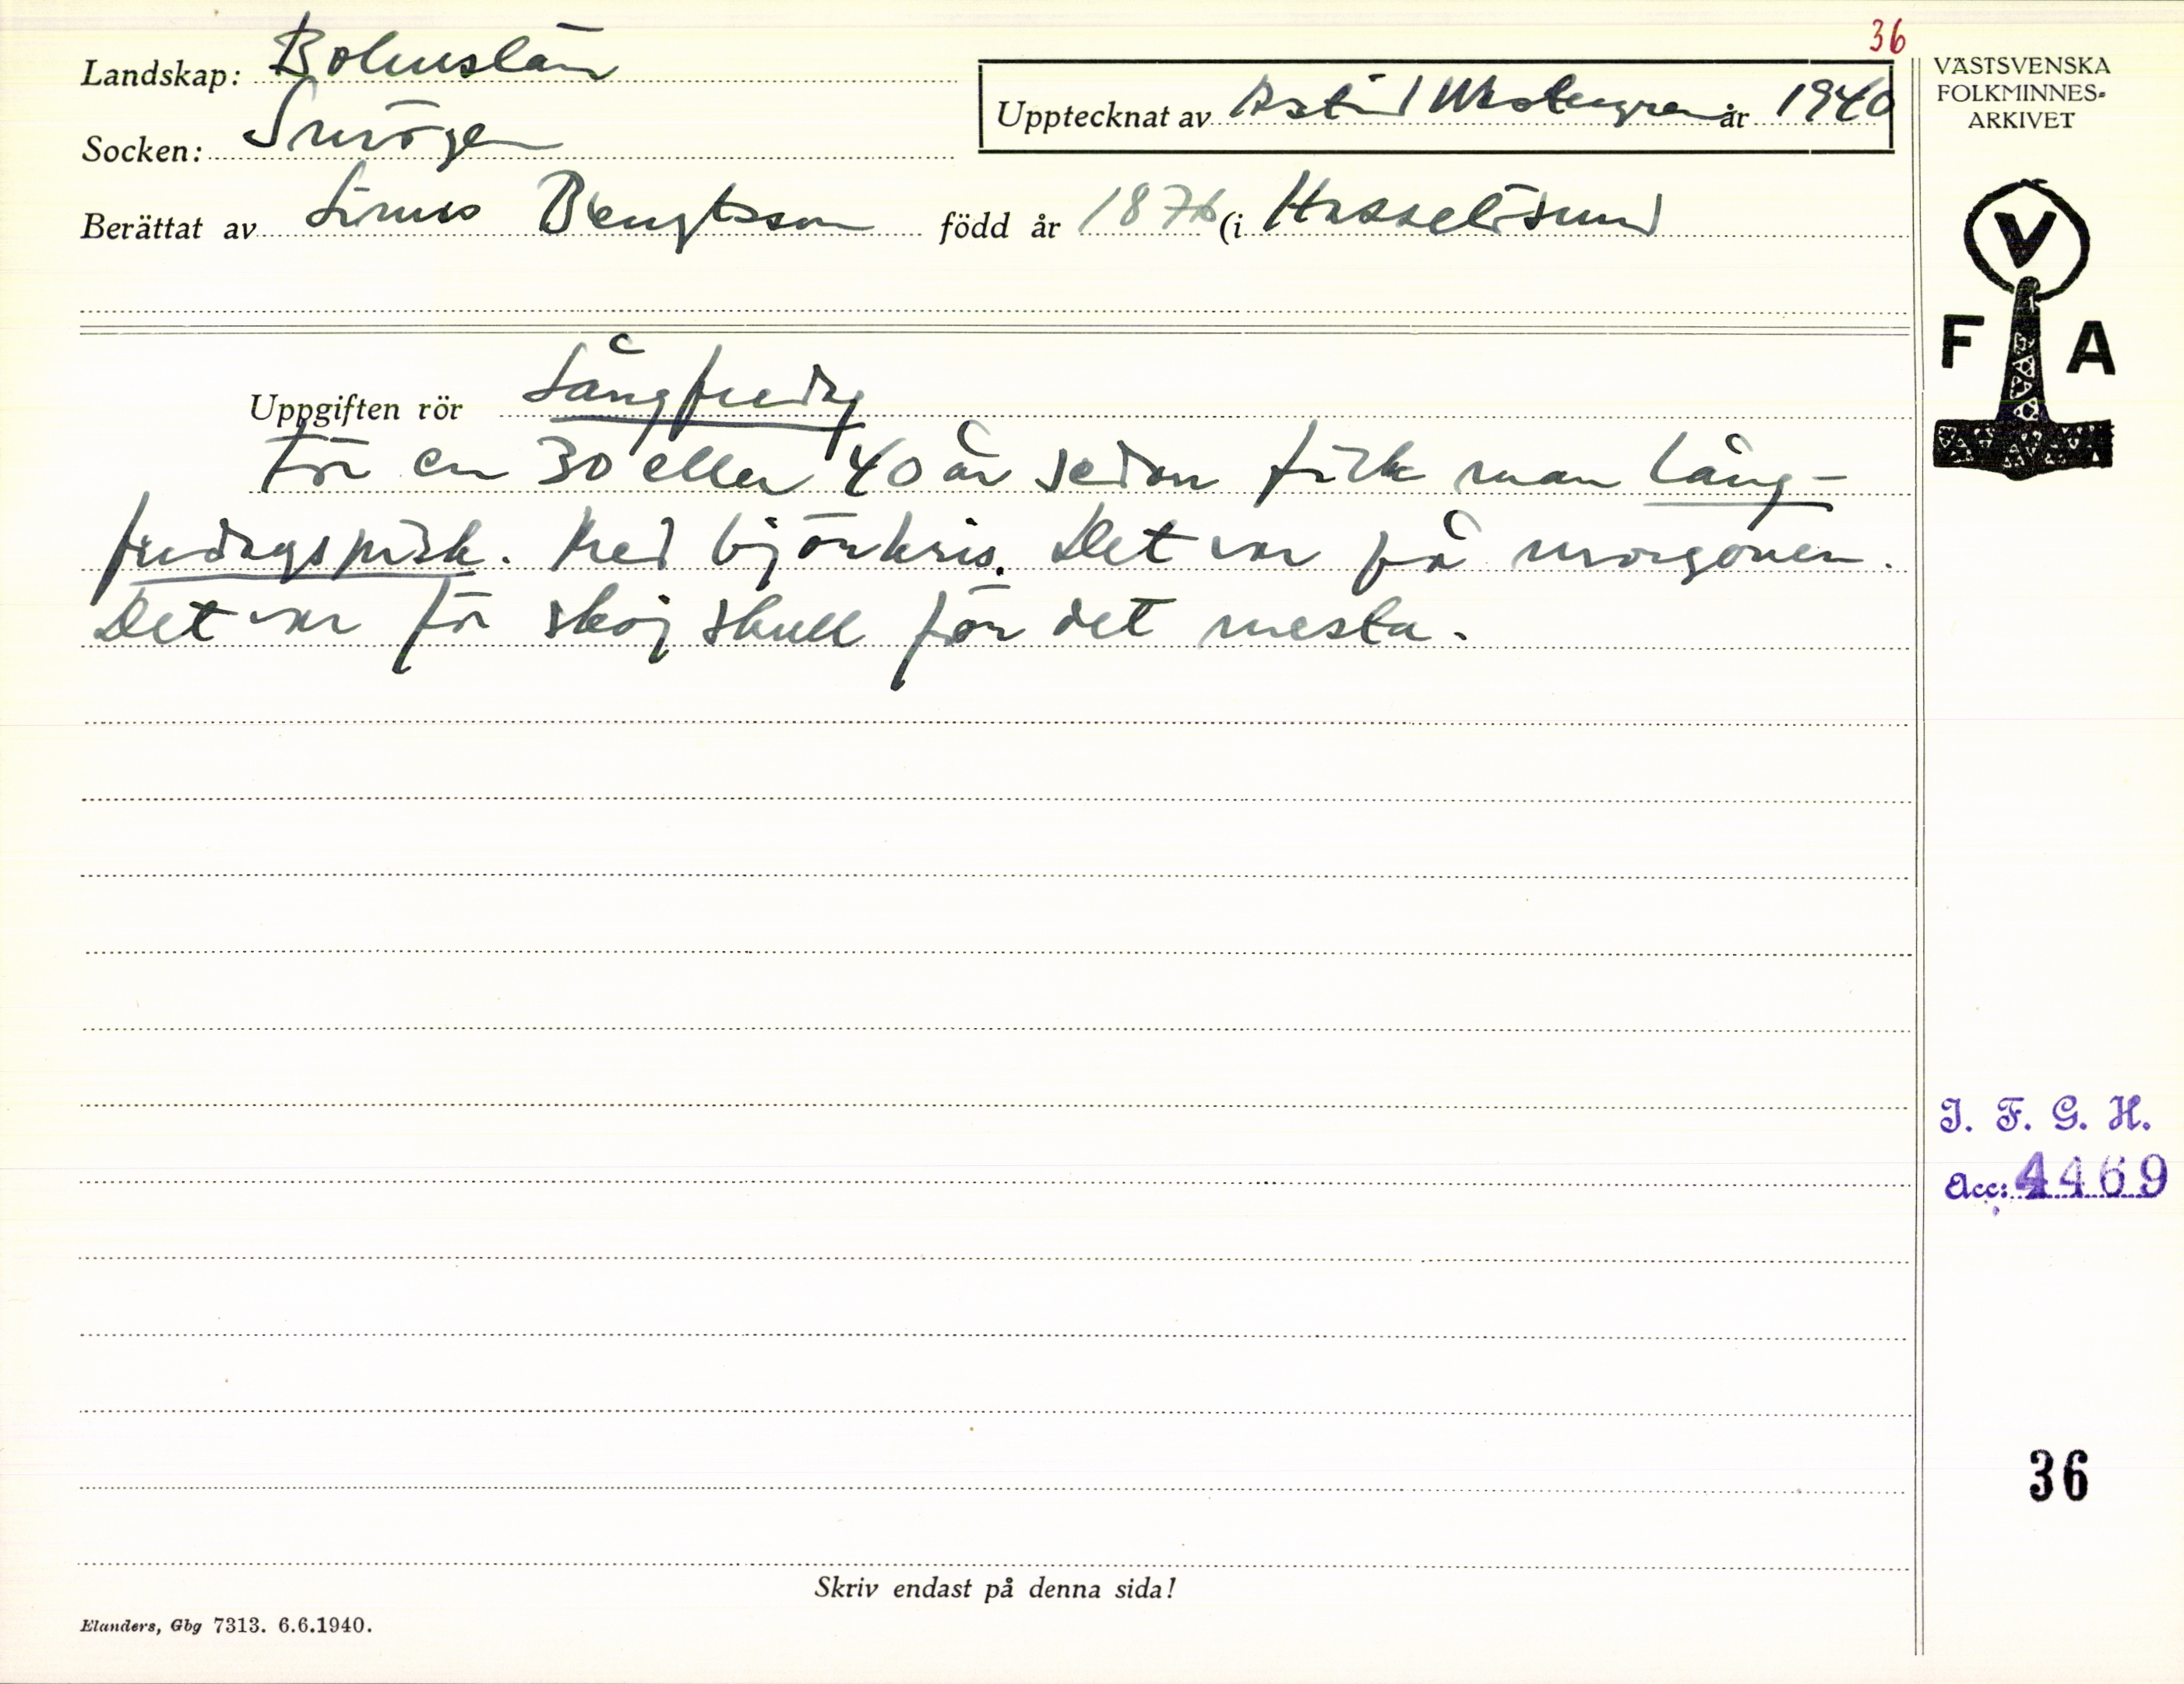 36
Landskap: Bohuslän
Socken: Smögen
Upptecknat av Astrid Westergren år 1940
Berättat av Linus Bengtsson född år 1876 (i Hasselösund
Uppgiften rör Långfredag
För en 30 eller 40 år sedan fick man lång-
fredagspisk. Med björkris. Det var på morgonen.
Det var för skoj skull för det mesta.
Skriv endast på denna sida!
Elanders, Gbg 7313. 6.6.1940.
VÄSTSVENSKA
FOLKMINNES-
ARKIVET
V
F A
I. F. G. H.
Acc: 4469
36